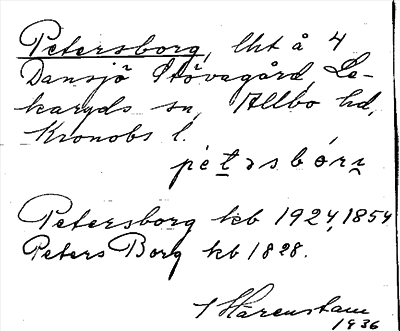 Petersborg, lht å 4
Dansjö Stövagård, Le-
karyds sn, Allbo hd,
Kronobs l.
pétəsbórı
Petersborg kb 1924, 1854
Peters Borg kb 1828.
Härenstam
1936